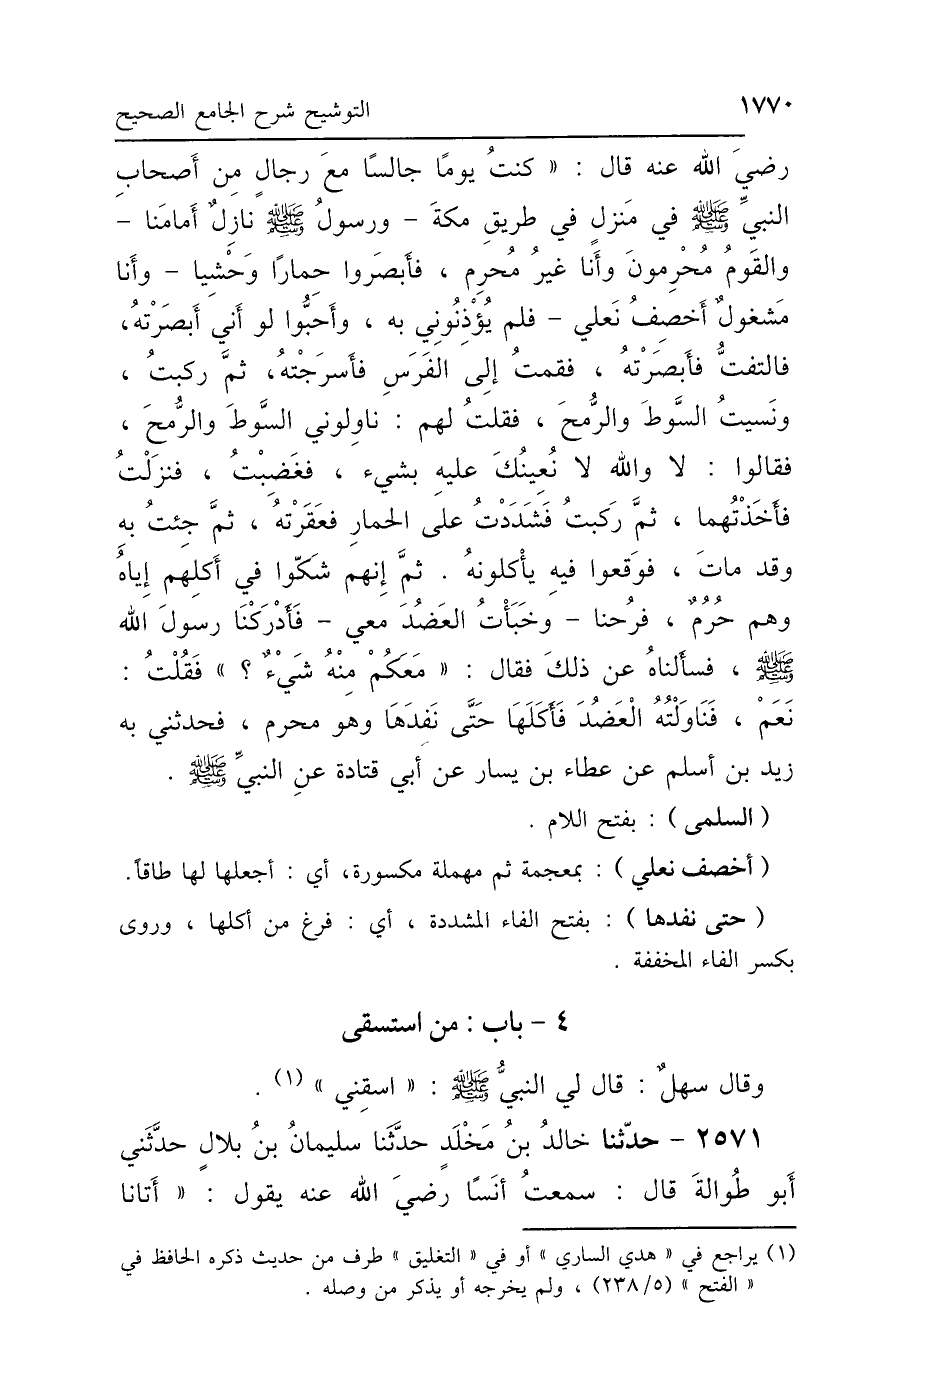 ١٧٧٠ التوشيح شرح الجامع الصحيح
رضيَ الله عنه قال : « كنتُ يومًا جالسًا معَ رجالٍ مِن أَصحابِ
النبيِّ ﷺ في مَنزلٍ في طريقِ مكةَ – ورسولُ ﷺ نازلٌ أَمامَنا –
والقَومُ مُحْرِمونَ وأَنا غيرُ مُحرِمٍ ، فأَبصَروا حمارًا وَحْشيا – وأَنا
مَشغولٌ أَخصِفُ نَعلي – فلم يُؤْذِنُوني به ، وأَحبُّوا لو أَني أَبصَرْتهُ،
فالتفتُّ فأَبصَرْتهُ ، فقمتُ إلى الفَرَسِ فأَسرَجْتهُ، ثمَّ ركبتُ ،
ونَسيتُ السَّوطَ والرُّمحَ ، فقلتُ لهم : ناوِلوني السَّوطَ والرُّمحَ ،
فقالوا : لا والله لا نُعِينُكَ عليهِ بشيء ، فغَضِبْتُ ، فنزلَتُ
فأَخَذْتُهما ، ثمَّ رَكبتُ فَشَدَدْتُ على الحمارِ فعقَرْتهُ ، ثمَّ جِئتُ بهِ
وقد ماتَ ، فوَقَعوا فيهِ يأْكلونهُ . ثمَّ إنهم شَكّوا في أَكلِهم إياهُ
وهم حُرُمٌ ، فرُحنا – وخَبَأْتُ العَضُدَ معي – فَأَدْرَكْنَا رسولَ الله
ﷺ ، فسألناهُ عن ذلكَ فقال : « مَعَكُمْ مِنْهُ شَيْءٌ ؟ » فَقُلْتُ :
نَعَمْ ، فَنَاوَلْتُهُ الْعَضُدَ فَأَكَلَهَا حَتَّى نَفدَهَا وهو محرِم ، فحدثني به
زيد بن أسلم عن عطاء بن يسار عن أبي قتادة عنِ النبيِّ ﷺ .
( السلمى ) : بفتح اللام .
( أخصف نعلي ) : بمعجمة ثم مهملة مكسورة، أي : أجعلها لها طاقاً.
( حتى نفدها ) : بفتح الفاء المشددة ، أي : فرغ من أكلها ، وروى
بكسر الفاء المخففة .
٤ – باب : من استسقى
وقال سهلٌ : قال لي النبيُّ ﷺ : « اسقِني » (١) .
٢٥٧١ – حدّثنا خالدُ بنُ مَخْلَدٍ حدثَّنا سليمانُ بنُ بلالٍ حدثَّني
أَبو طُوالةَ قال : سمعتُ أنَسًا رضيَ الله عنه يقول : « أَتانا
(١) يراجع في « هدي الساري » أو في « التغليق » طرف من حديث ذكره الحافظ في
« الفتح » (٢٣٨/٥) ، ولم يخرجه أو يذكر من وصله .